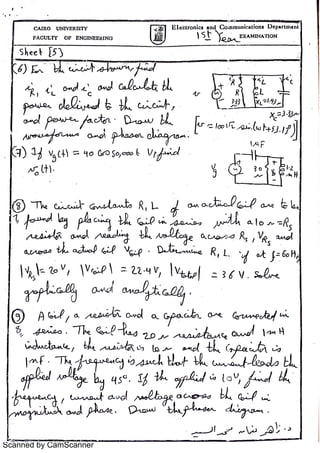 CAIRO UNIVERSITY
FACULTY OF ENGINEERING
Electronics and Communications Department
1st Year EXAMINATION
Sheet [5]
(6) For the circuit shown, find
iR, iL and ic and calculate the
power delivered to the circuit,
and power factor. Draw the
waveforms and phasor diagram.
v = 100√2 sin(ωt+53.1°)
(7) If vg(t) = 40 cos 50,000 t V, find
v0(t).
1 μF
(8) The circuit constants R, L of an actual coil are to be
found by placing the coil in series with a 10 Ω = Rs
resistor and reading the voltage across Rs, VRs and
across the actual coil Vcoil. Determine R, L if at f = 60 Hz,
|VRs| = 20 V, |Vcoil| = 22.4 V, |Vtotal| = 36 V. Solve
graphically and analytically.
(9) A coil, a resistor and a capacitor are connected in
series. The coil has 20 Ω resistance and 1 mH
inductance, the resistor is 10 Ω and the capacitor is
1 μf. The frequency is such that the current leads the
applied voltage by 45°. If the applied is 10V, find the
frequency, current and voltage across the coil in
magnitude and phase. Draw the phasor diagram.
Scanned by CamScanner